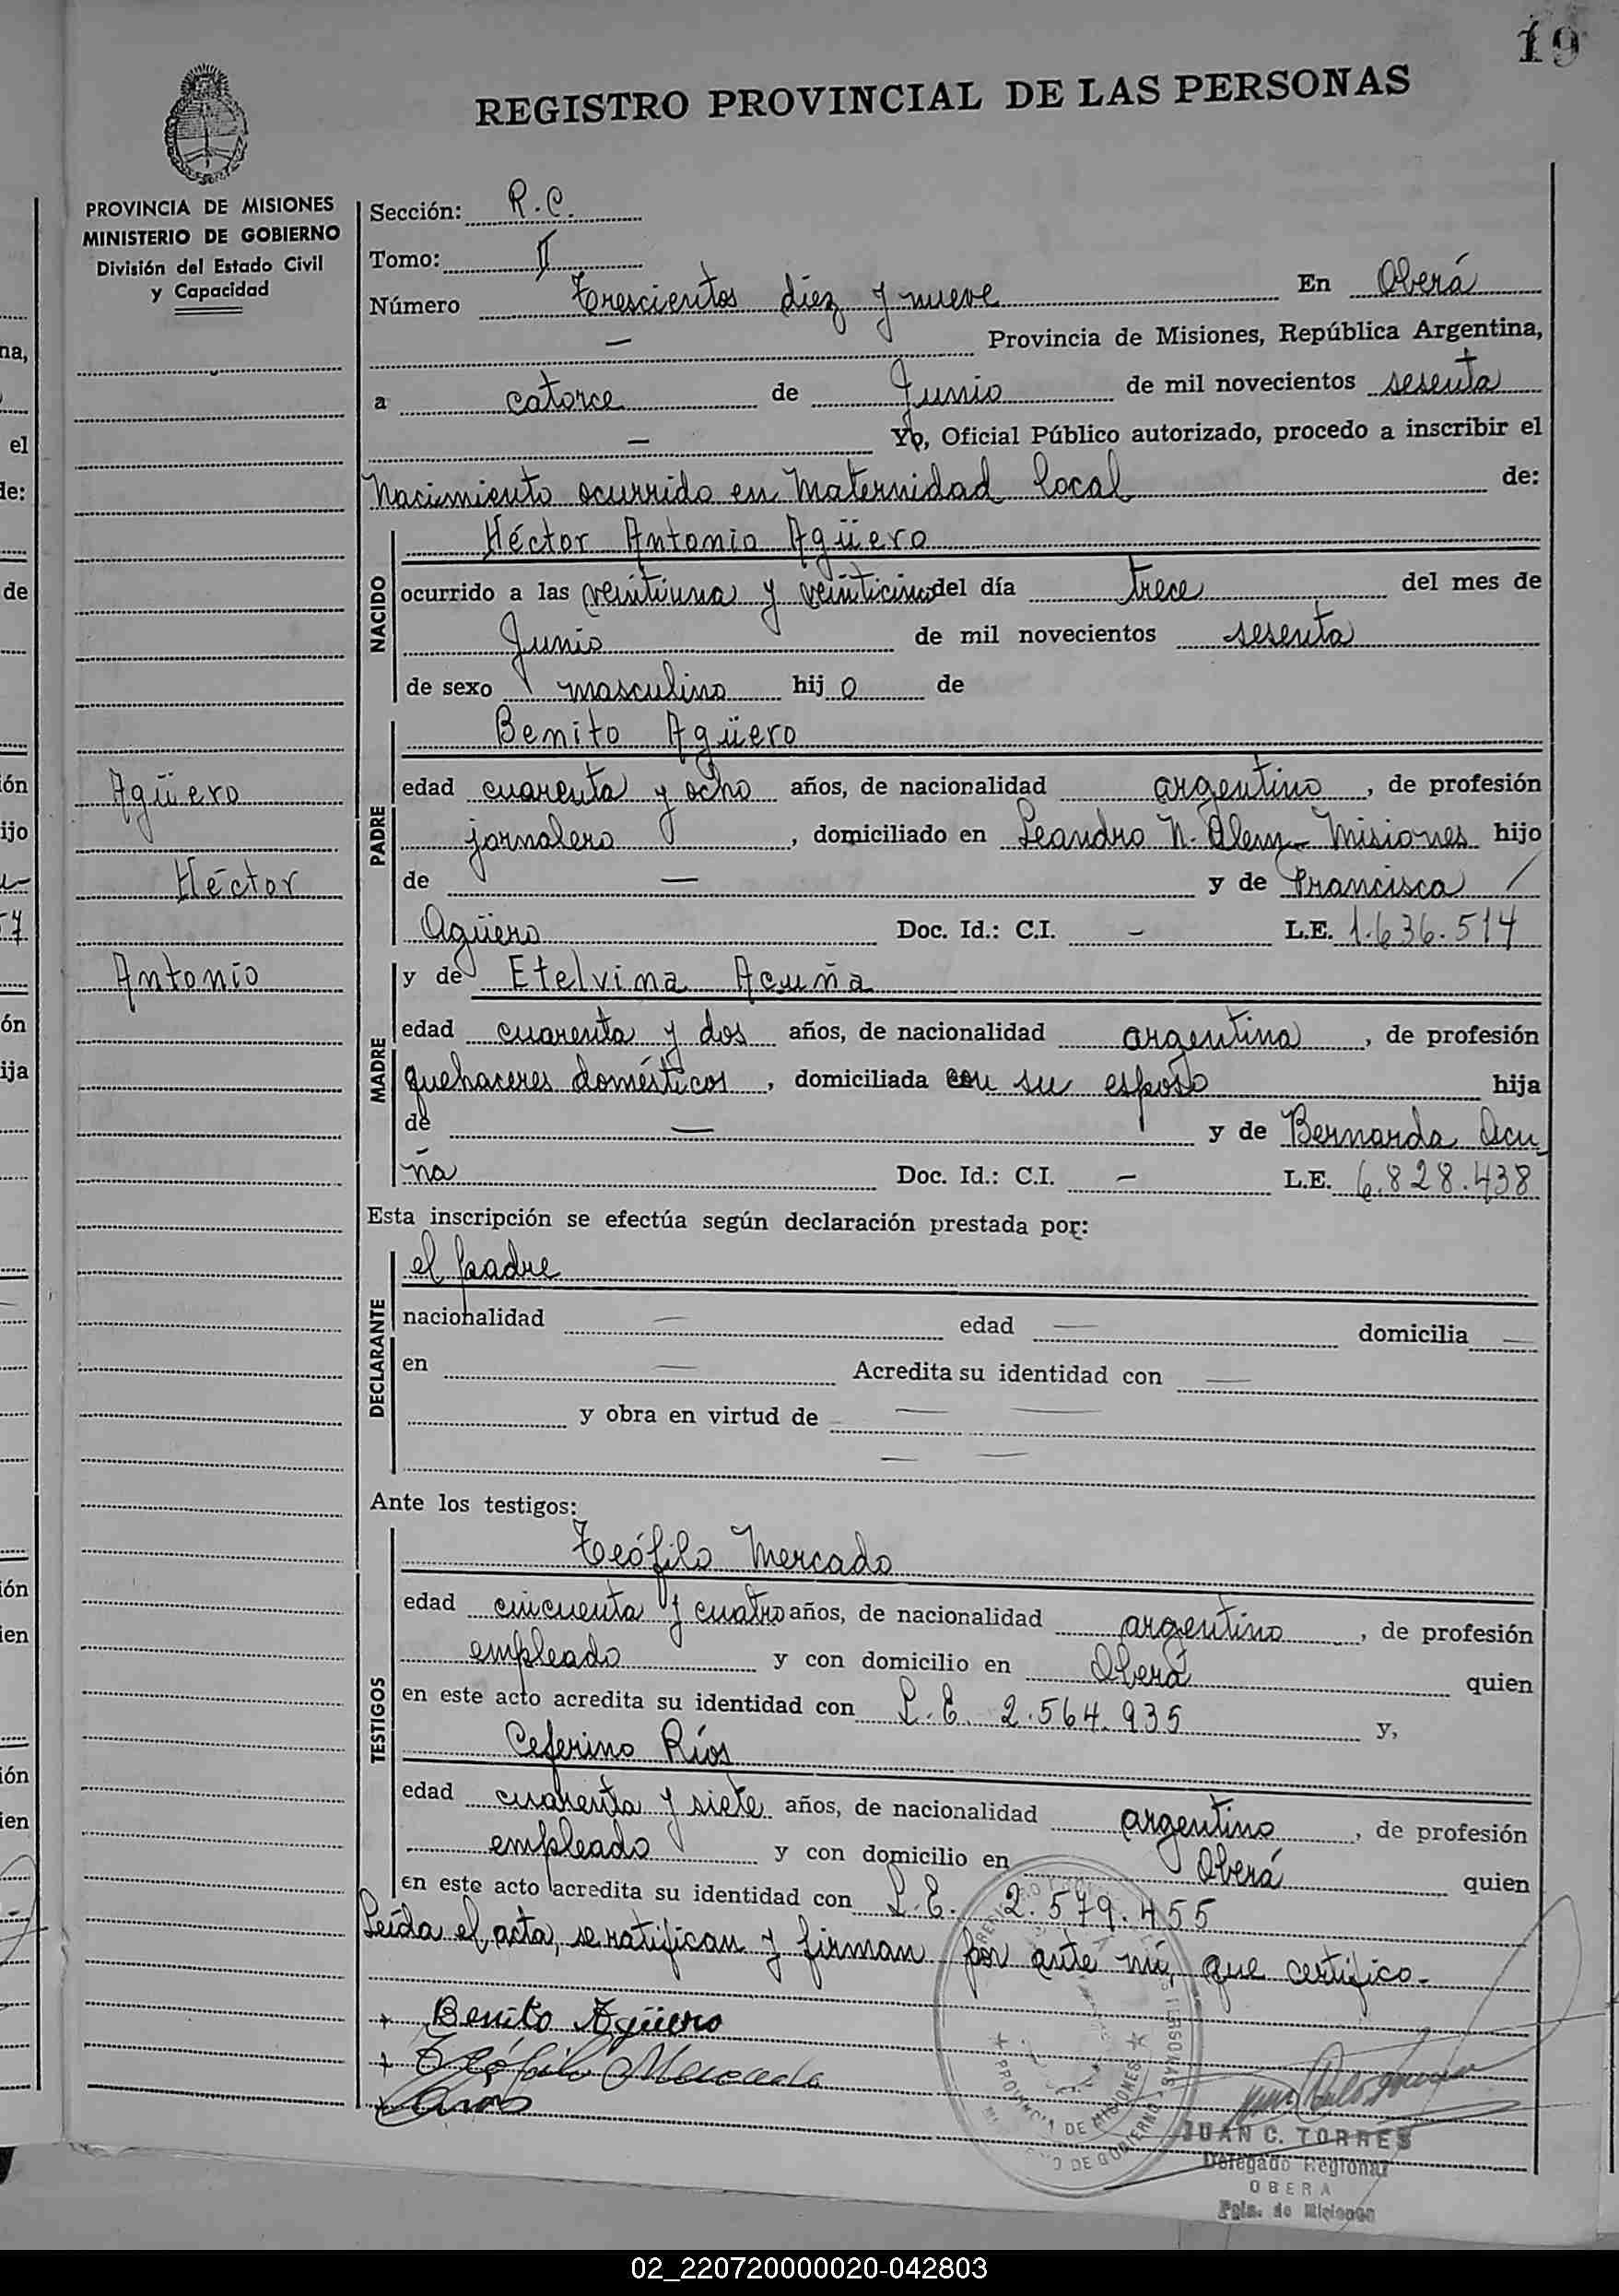 19
REGISTRO PROVINCIAL DE LAS PERSONAS
PROVINCIA DE MISIONES
MINISTERIO DE GOBIERNO
División del Estado Civil
y Capacidad
Agüero
Héctor
Antonio
Sección: R.C.
Tomo: II
Número Trescientos diez y nueve En Oberá
— Provincia de Misiones, República Argentina,
a catorce de Junio de mil novecientos sesenta
— Yo, Oficial Público autorizado, procedo a inscribir el
Nacimiento ocurrido en Maternidad Local de:
NACIDO
Héctor Antonio Agüero
ocurrido a las veintiuna y veinticinco del día trece del mes de
Junio de mil novecientos sesenta
de sexo masculino hijo de
PADRE
Benito Agüero
edad cuarenta y ocho años, de nacionalidad argentino, de profesión
jornalero, domiciliado en Leandro N. Alem - Misiones hijo
de — y de Francisca /
Agüero Doc. Id.: C.I. — L.E. 1.636.514
MADRE
y de Etelvina Acuña
edad cuarenta y dos años, de nacionalidad argentina, de profesión
quehaceres domésticos, domiciliada con su esposo hija
de — y de Bernarda Acu
ña Doc. Id.: C.I. — L.E. 6.828.438
Esta inscripción se efectúa según declaración prestada por:
DECLARANTE
el padre
nacionalidad — edad — domicilia —
en — Acredita su identidad con —
y obra en virtud de — —
— —
Ante los testigos:
TESTIGOS
Teófilo Mercado
edad cincuenta y cuatro años, de nacionalidad argentino, de profesión
empleado y con domicilio en Oberá quien
en este acto acredita su identidad con L.E. 2.564.935 y,
Ceferino Ríos
edad cuarenta y siete años, de nacionalidad argentino, de profesión
empleado y con domicilio en Oberá quien
en este acto acredita su identidad con L.E. 2.579.455
Leída el acta, se ratifican y firman por ante mí, que certifico.-
+ Benito Agüero
+ Teófilo Mercado
+
PROVINCIA DE MISIONES
DE GOBIERNO
JUAN C. TORRES
Delegado Regional
OBERA
Pcia. de Misiones
02_220720000020-042803